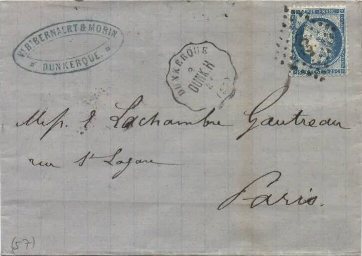 Vve B. BERNAERT & MORIN
DUNKERQUE.
DUNKERQUE
DUNK.H
Mess. E Lachambre Gautreau
rue St Lazare
Paris.
(57)